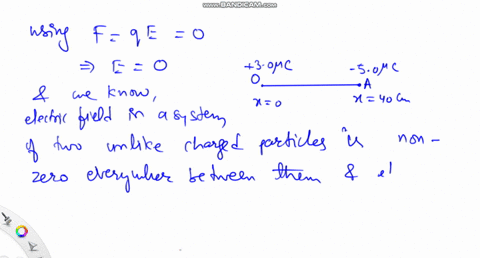 WWW.BANDICAM.COM
using F = qE = 0
⇒ E = 0
+3.0μC -5.0μC
O A
x=0 x=40cm
& we know,
electric field in a system
of two unlike charged particles is non-
zero everywhere between them & el